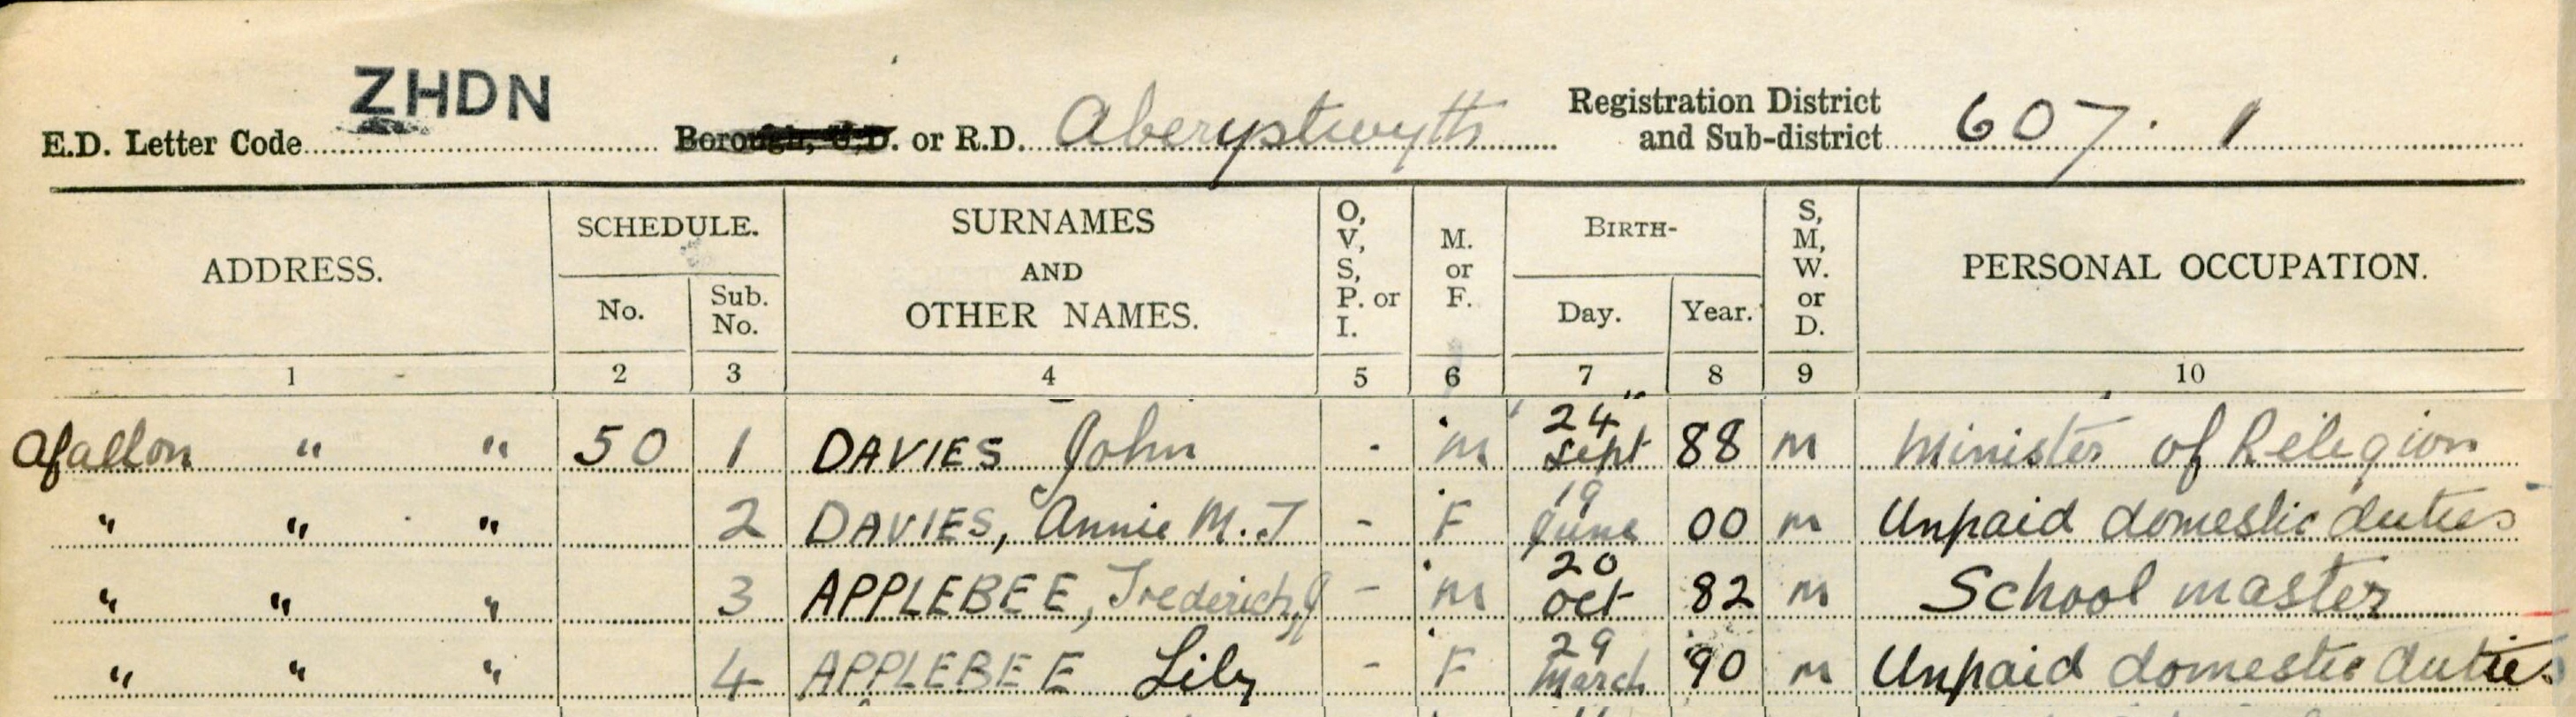 ZHDN
E.D. Letter Code Borough, U.D. or R.D. Aberystwyth Registration District and Sub-district 607. 1
ADDRESS. SCHEDULE. No. Sub. No. SURNAMES AND OTHER NAMES. O, V, S, P. or I. M. or F. BIRTH- Day. Year. S, M, W. or D. PERSONAL OCCUPATION.
1 2 3 4 5 6 7 8 9 10
Afallon " " 50 1 DAVIES John - M 24 Sept 88 M Minister of Religion
" " " 2 DAVIES, Annie M. J - F 19 June 00 M Unpaid domestic duties
" " " 3 APPLEBEE, Frederick J - M 20 Oct 82 M School master
" " " 4 APPLEBEE Lily - F 29 March 90 M Unpaid domestic duties